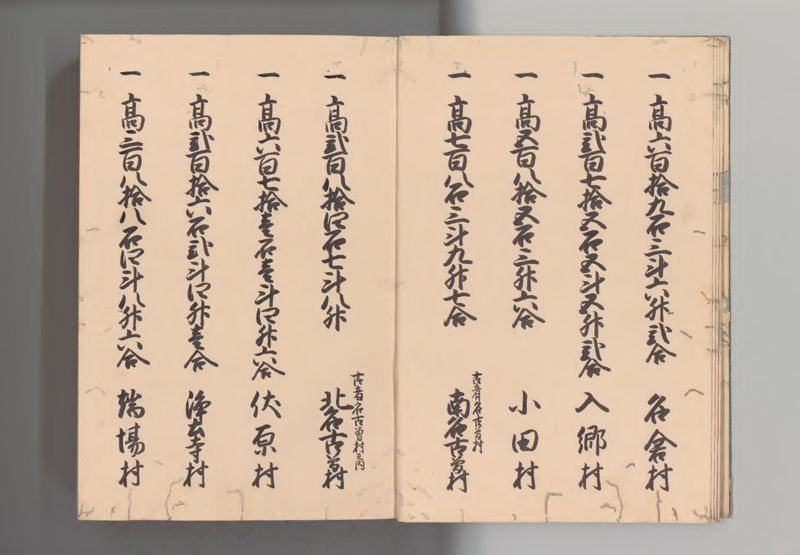 一 高六百拾九石三斗六升弐合 名倉村
一 高弐百七拾五石五斗五升弐合 入郷村
一 高五百八拾五石三升六合 小田村
一 高七百八石三斗九升七合 南名古曽村
古者名古曽村
一 高弐百八拾四石七斗八升 北名古曽村
古者名古曽村之内
一 高六百七拾壱石壱斗四升六合 伏原村
一 高弐百拾六石弐斗四升壱合 浄土寺村
一 高三百八拾八石四斗八升六合 端場村